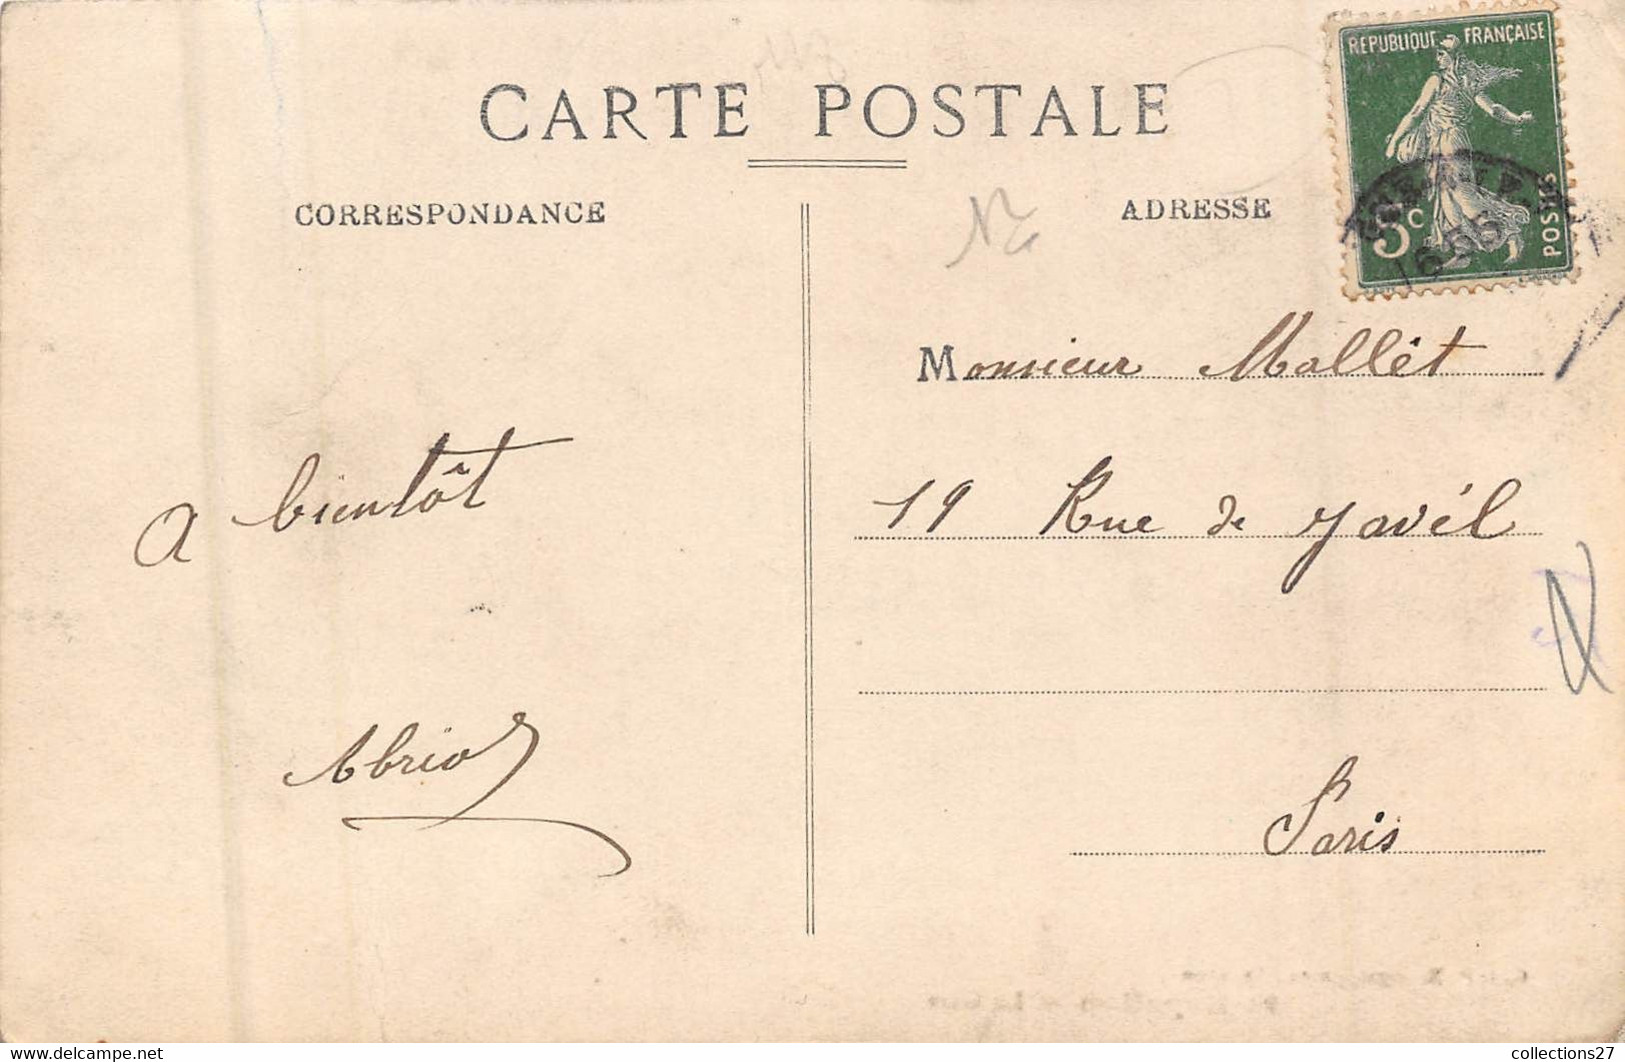 CARTE POSTALE
CORRESPONDANCE
ADRESSE
REPUBLIQUE FRANÇAISE
5c
POSTES
Monsieur Mallêt
19 Rue de Javél
Paris
A bientôt
collections27